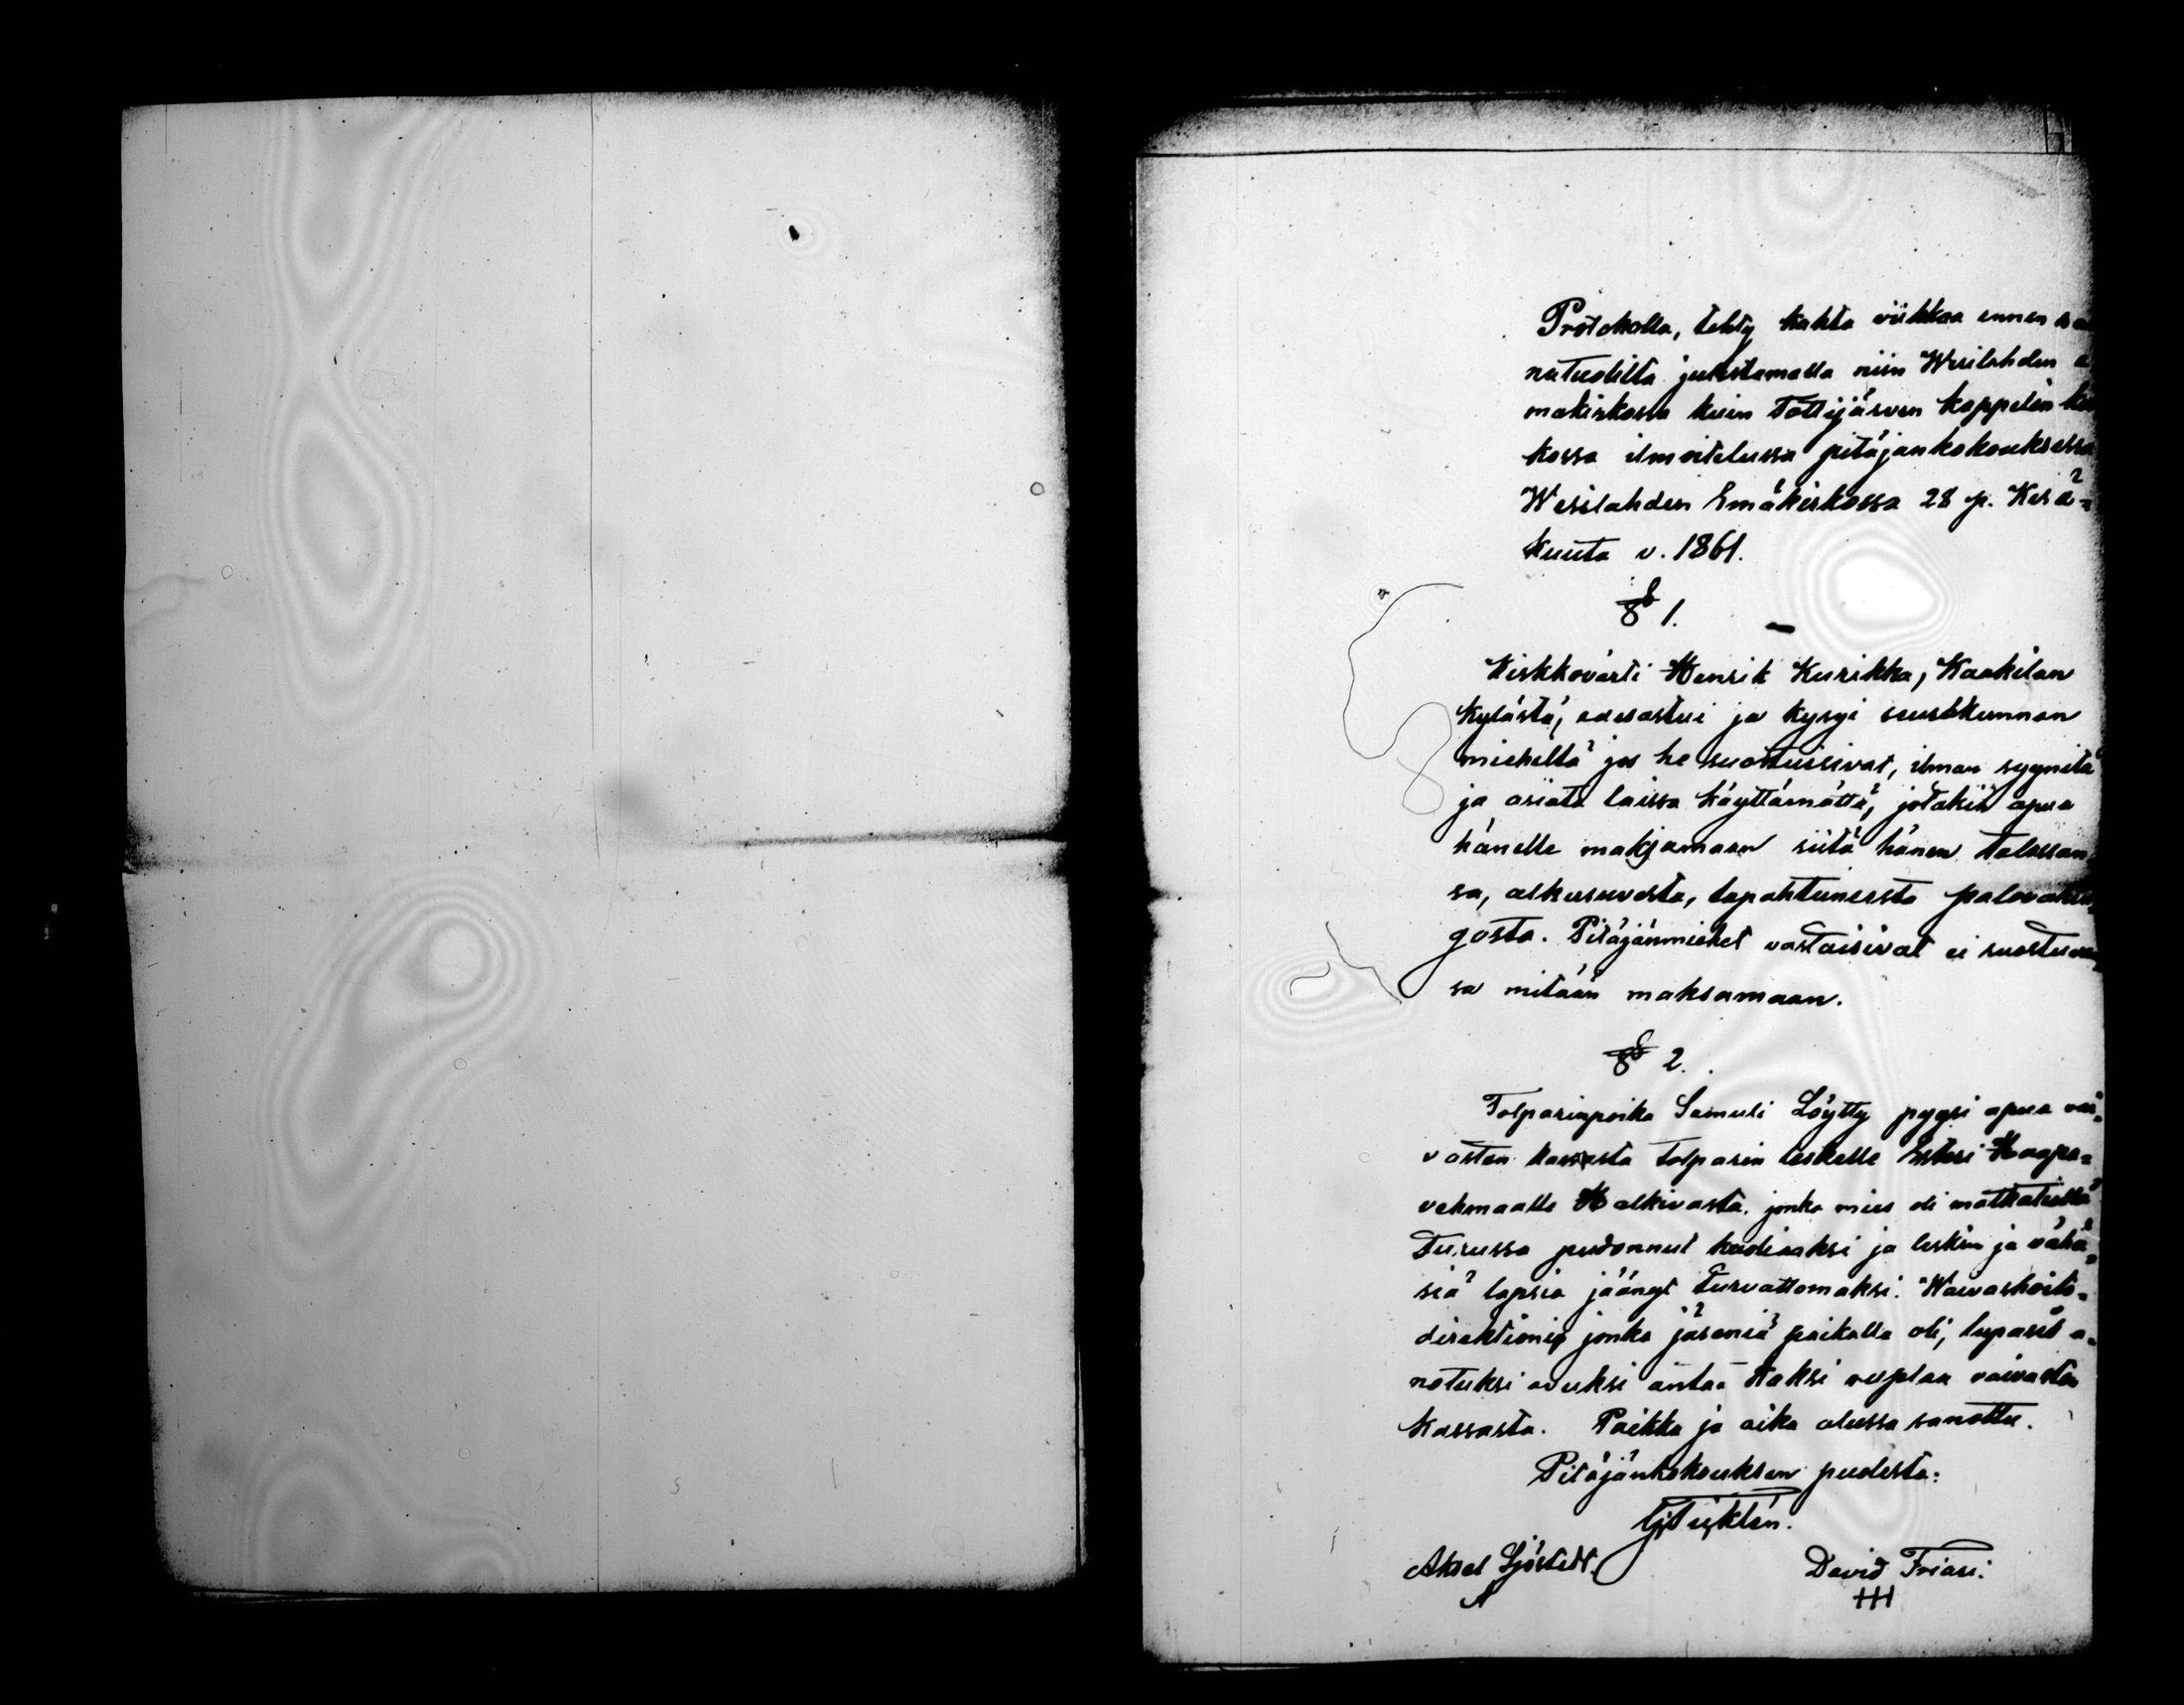 Protokolla, tehty kahta viikkaa ennen
natuolilta julistamalla niin Wesilahden e
mäkirkossa kuin Tottijärven kappelin kir
kossa ilmoitetussa pitäjänkokouksessa
Wesilahden Emäkirkossa 28 p. Kesä=
kuuta v. 1861.
§ 1.
Kirkkovärti Henrik Kurikka, Kaakilan
kylästä, edesastui ja kysyi seurakunnan
mieheltä jos he suostuisivat, ilman syynitä
ja asiata laissa käyttämättä, jotakin apua
hänelle maksamaan siitä hänen talossan=
sa, alkusuvesta, tapahtuneesta palovahin=
gosta. Pitäjänmiehet vastaisivat ei suostuvan=
sa mitään maksamaan.
§ 2.
Tolparinpoika Samuli Löytty pyysi apua vai=
vasten kassasta tolparin leskelle Esteri Haapa=
vehmaalle Halkivasta, jonka mies oli matkateillä
Turussa pudonnut kuoliaaksi ja leskin ja vähä=
siä lapsia jäänyt turvattomaksi. Waivashoito=
direktioni, jonka jäseniä paikalla oli, lupasit a=
notuksi avuksi antaa kaksi ruplaa vaivasten
kassasta. Paikka ja aika alussa sanottu.
Pitäjänkokouksen puolesta:
David Friari.
Aksel Sjöstedt.